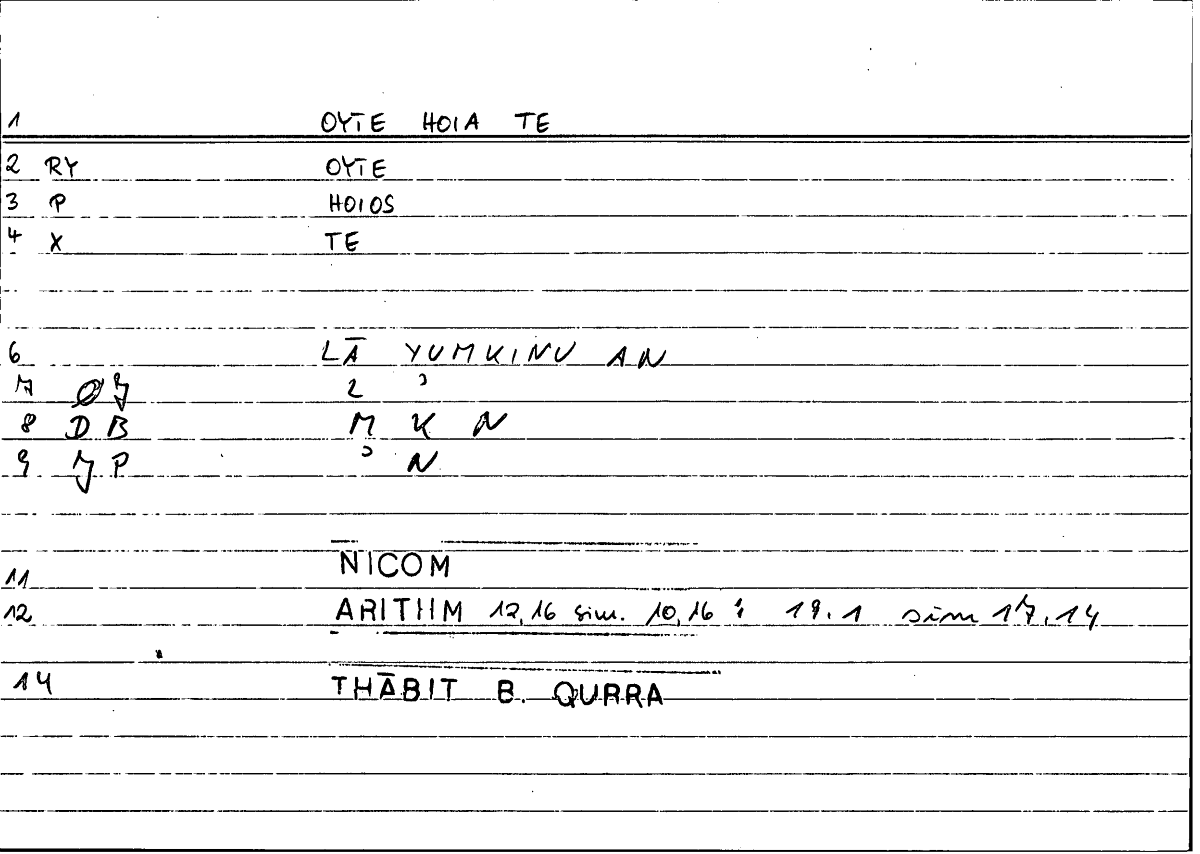 1 OYTE HOIA TE
2 RY OYTE
3 P HOIOS
4 X TE
6 LĀ YUMKINU AN
7 ØJ L ʾ
8 DB M K N
9 JP ʾ N
11 NICOM
12 ARITHM 12,16 sim. 10,16 ; 19.1 sim 17.14
14 THĀBIT B. QURRA